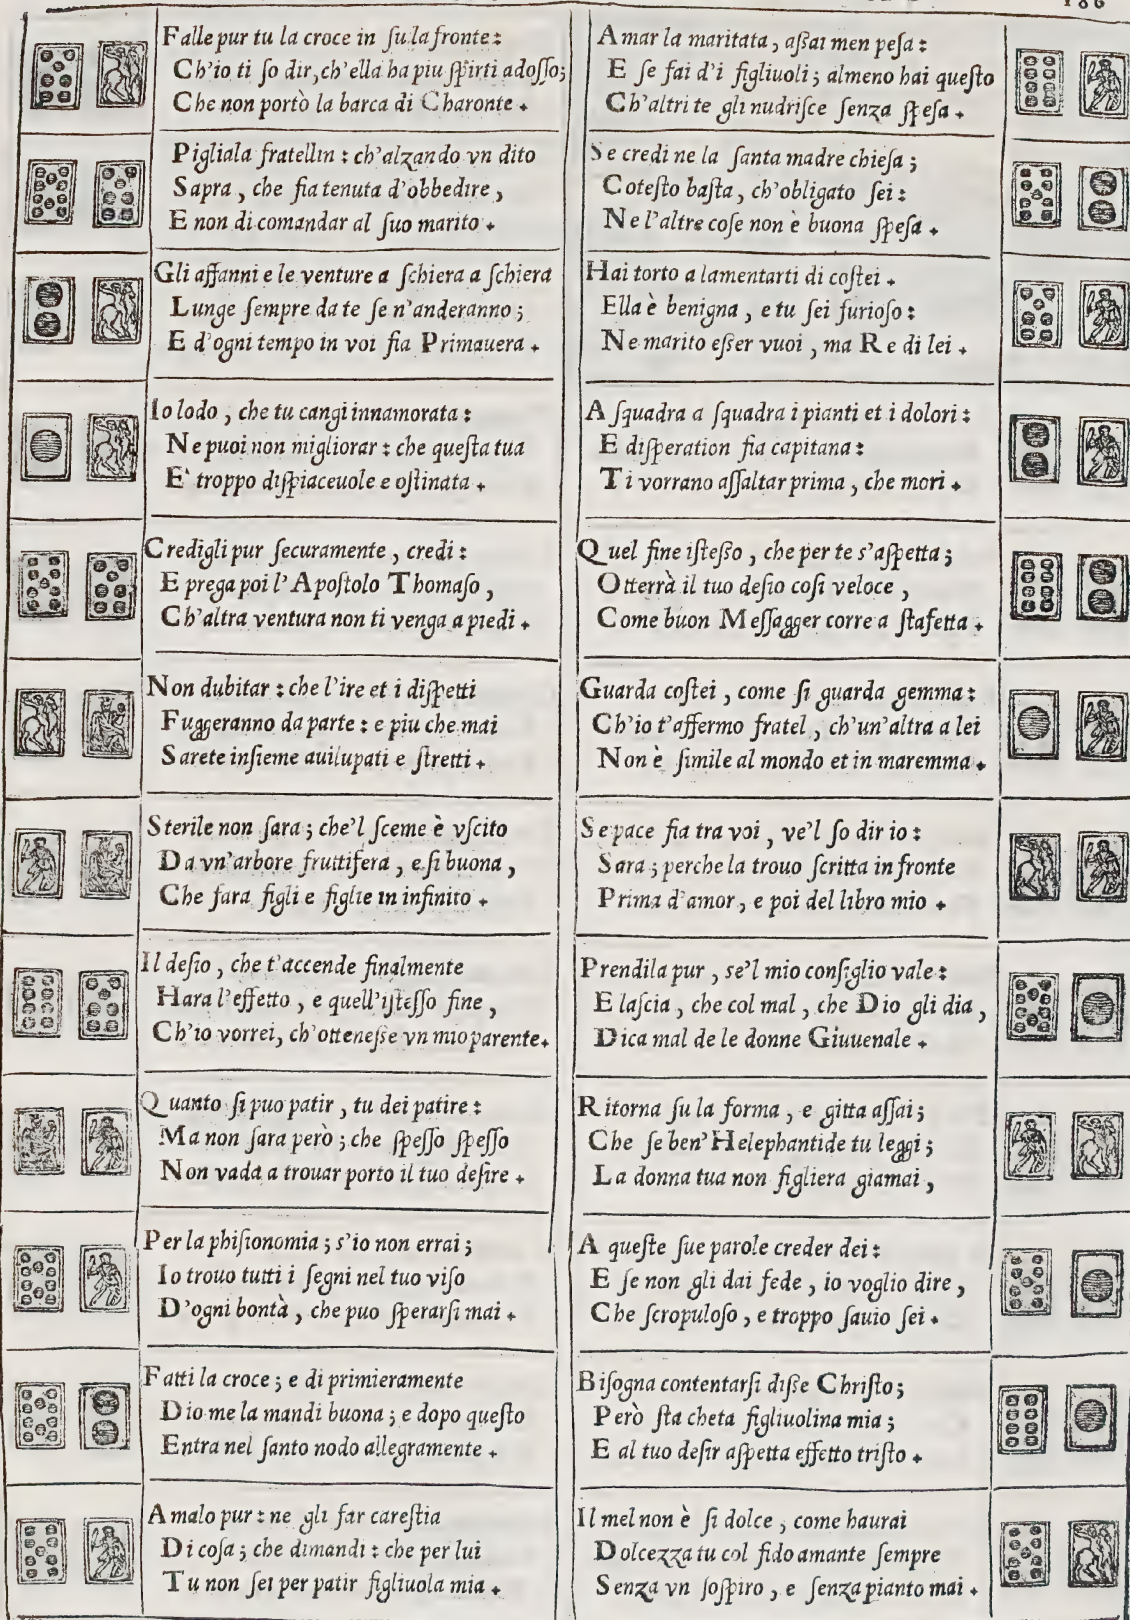 186
Falle pur tu la croce in su la fronte:
Ch'io ti so dir, ch'ella ha piu spirti adosso;
Che non portò la barca di Charonte.
Pigliala fratellin: ch'alzando vn dito
Sapra, che fia tenuta d'obbedire,
E non di comandar al suo marito.
Gli affanni e le venture a schiera a schiera
Lunge sempre da te se n'anderanno;
E d'ogni tempo in voi fia Primauera.
Io lodo, che tu cangi innamorata:
Ne puoi non migliorar: che questa tua
E' troppo dispiaceuole e ostinata.
Credigli pur securamente, credi:
E prega poi l'Apostolo Thomaso,
Ch'altra ventura non ti venga a piedi.
Non dubitar: che l'ire et i dispetti
Fuggeranno da parte: e piu che mai
Sarete insieme auilupati e stretti.
Sterile non sara; che'l sceme è vscito
Da vn'arbore fruttifera, e si buona,
Che fara figli e figlie in infinito.
Il desio, che t'accende finalmente
Hara l'effetto, e quell'istesso fine,
Ch'io vorrei, ch'ottenesse vn mio parente.
Quanto si puo patir, tu dei patire:
Ma non sara però; che spesso spesso
Non vada a trouar porto il tuo desire.
Per la phisionomia; s'io non errai;
Io trouo tutti i segni nel tuo viso
D'ogni bontà, che puo sperarsi mai.
Fatti la croce; e di primieramente
Dio me la mandi buona; e dopo questo
Entra nel santo nodo allegramente.
Amalo pur: ne gli far carestia
Di cosa; che dimandi: che per lui
Tu non sei per patir figliuola mia.
Amar la maritata, assai men pesa:
E se fai d'i figliuoli; almeno hai questo
Ch'altri te gli nudrisce senza spesa.
Se credi ne la santa madre chiesa;
Cotesto basta, ch'obligato sei:
Ne l'altre cose non è buona spesa.
Hai torto a lamentarti di costei.
Ella è benigna, e tu sei furioso:
Ne marito esser vuoi, ma Re di lei.
A squadra a squadra i pianti et i dolori:
E disperation fia capitana:
Ti vorrano assaltar prima, che mori.
Quel fine istesso, che per te s'aspetta;
Otterrà il tuo desio cosi veloce,
Come buon Messagger corre a stafetta.
Guarda costei, come si guarda gemma:
Ch'io t'affermo fratel, ch'un'altra a lei
Non è simile al mondo et in maremma.
Se pace fia tra voi, ve'l so dir io:
Sara; perche la trouo scritta in fronte
Prima d'amor, e poi del libro mio.
Prendila pur, se'l mio consiglio vale:
E lascia, che col mal, che Dio gli dia,
Dica mal de le donne Giuuenale.
Ritorna su la forma, e gitta assai;
Che se ben'Helephantide tu leggi;
La donna tua non figliera giamai,
A queste sue parole creder dei:
E se non gli dai fede, io voglio dire,
Che scropuloso, e troppo sauio sei.
Bisogna contentarsi disse Christo;
Però sta cheta figliuolina mia;
E al tuo desir aspetta effetto tristo.
Il mel non è si dolce, come haurai
Dolcezza tu col fido amante sempre
Senza vn sospiro, e senza pianto mai.